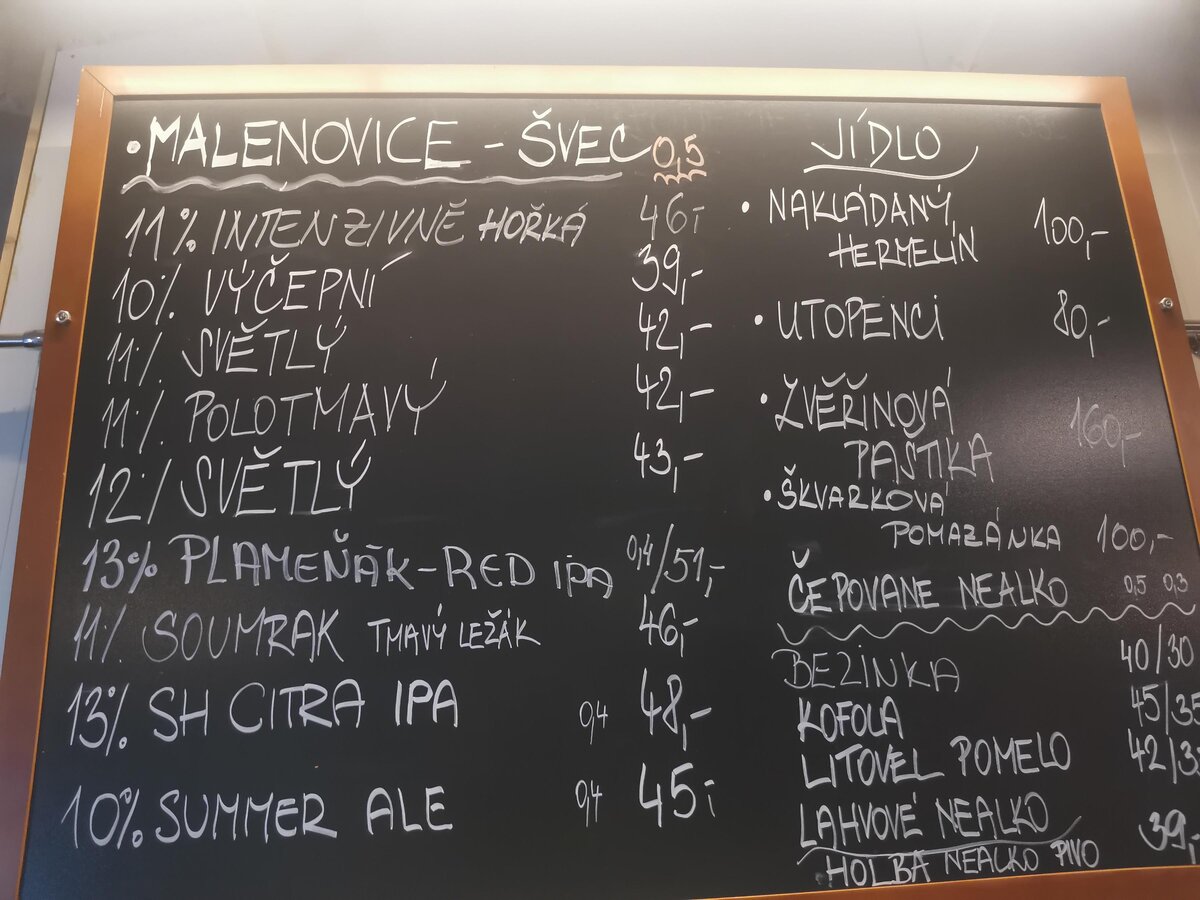 • MALENOVICE - ŠVEC 0,5
11% INTENZIVNĚ HOŘKÁ 46,-
10% VÝČEPNÍ 39,-
11% SVĚTLÝ 42,-
11% POLOTMAVÝ 42,-
12% SVĚTLÝ 43,-
13% PLAMEŇÁK-RED IPA 0,4/51,-
11% SOUMRAK TMAVÝ LEŽÁK 46,-
13% SH CITRA IPA 0,4 48,-
10% SUMMER ALE 0,4 45,-
JÍDLO
• NAKLÁDANÝ
HERMELÍN 100,-
• UTOPENCI 80,-
• ZVĚŘINOVÁ
PAŠTIKA 160,-
• ŠKVARKOVÁ
POMAZÁNKA 100,-
ČEPOVANE NEALKO 0,5 0,3
BEZINKA 40/30
KOFOLA 45/35
LITOVEL POMELO 42/3
LAHVOVÉ NEALKO
HOLBA NEALKO PIVO 39,